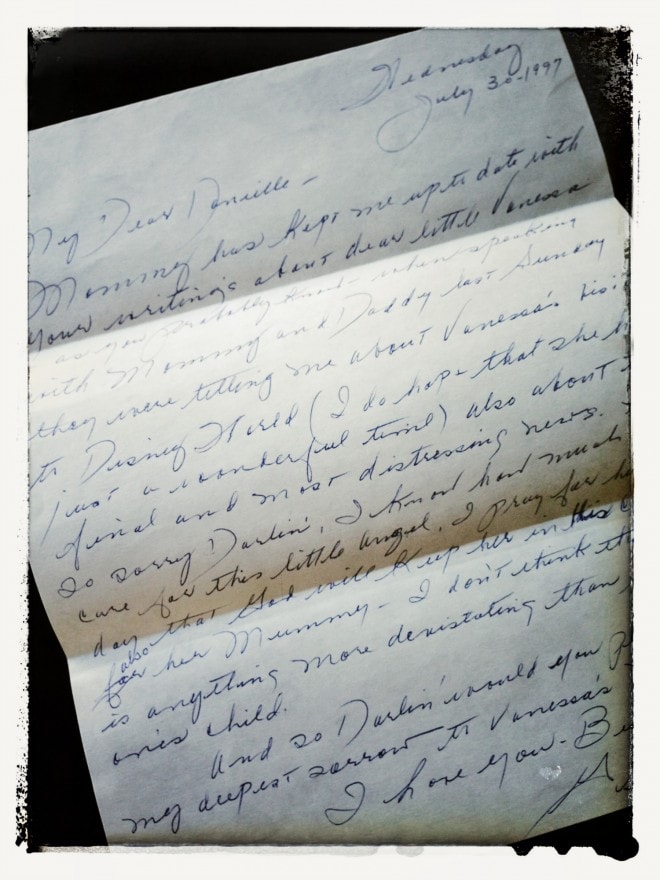 Wednesday
July 30-1997
My Dear Danielle -
Mommy has kept me up to date with
your writings about dear little Vanessa
as you probably know - when speaking
with Mommy and Daddy last Sunday
they were telling me about Vanessa's
to Disney World (I do hope that she
just a wonderful time) also about
final and most distressing news.
So sorry Darlin', I know how much
care for this little angel. I pray for
day that God will keep her in this
also
for her Mummy - I don't think
is anything more devistating than
one's child.
And so Darlin' would you
my deepest sorrow to Vanessa's
I love you -